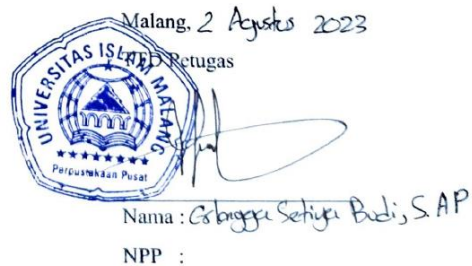 Malang, 2 Agustus 2023
TTD Petugas
UNIVERSITAS ISLAM MALANG
Perpustakaan Pusat
Nama : Setiya Budi, S. AP
NPP :